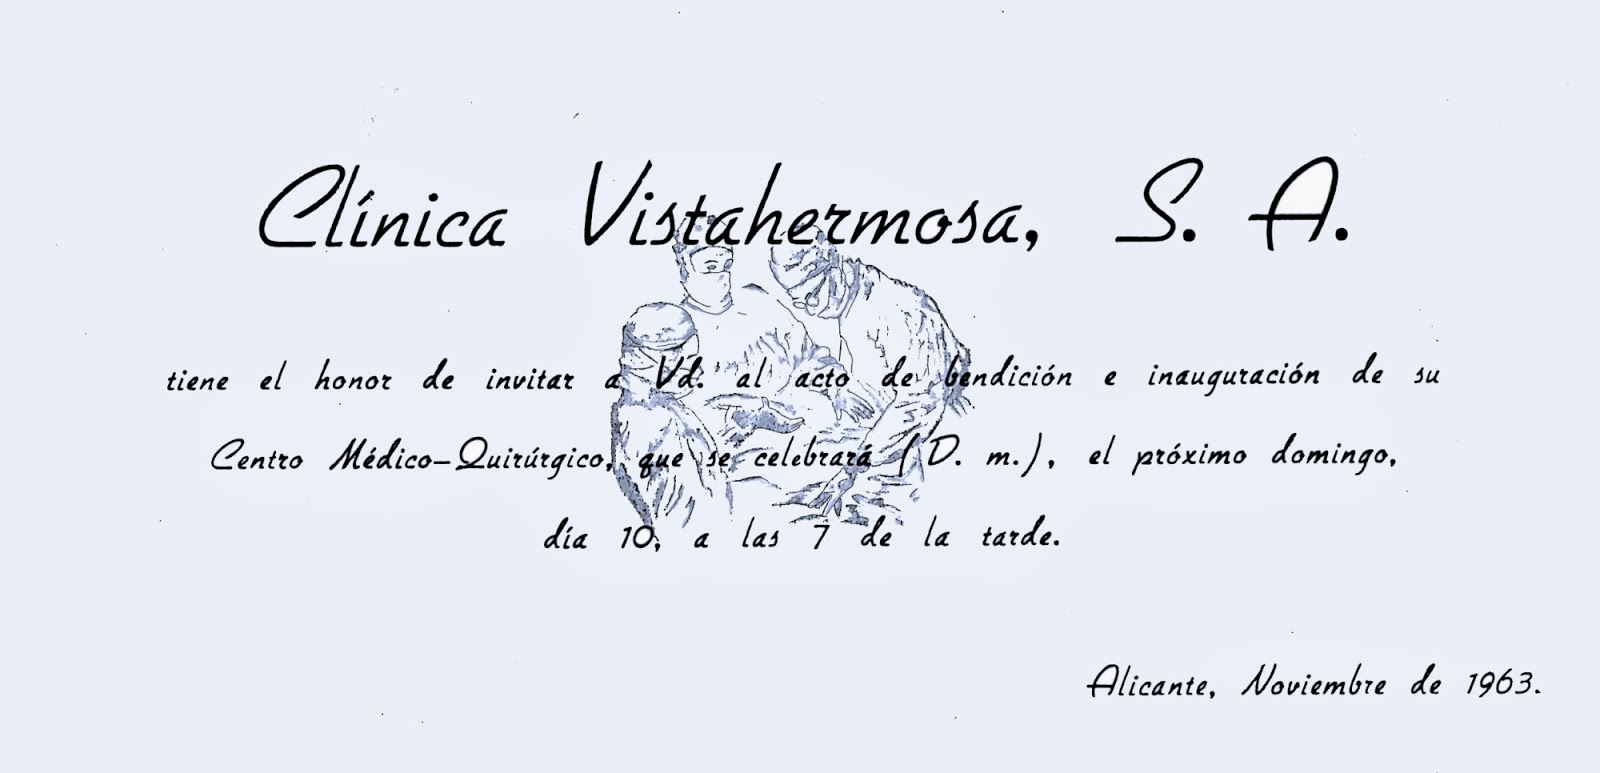 Clínica Vistahermosa, S. A.
tiene el honor de invitar a Vd. al acto de bendición e inauguración de su
Centro Médico-Quirúrgico, que se celebrará (D. m.), el próximo domingo,
día 10, a las 7 de la tarde.
Alicante, Noviembre de 1963.